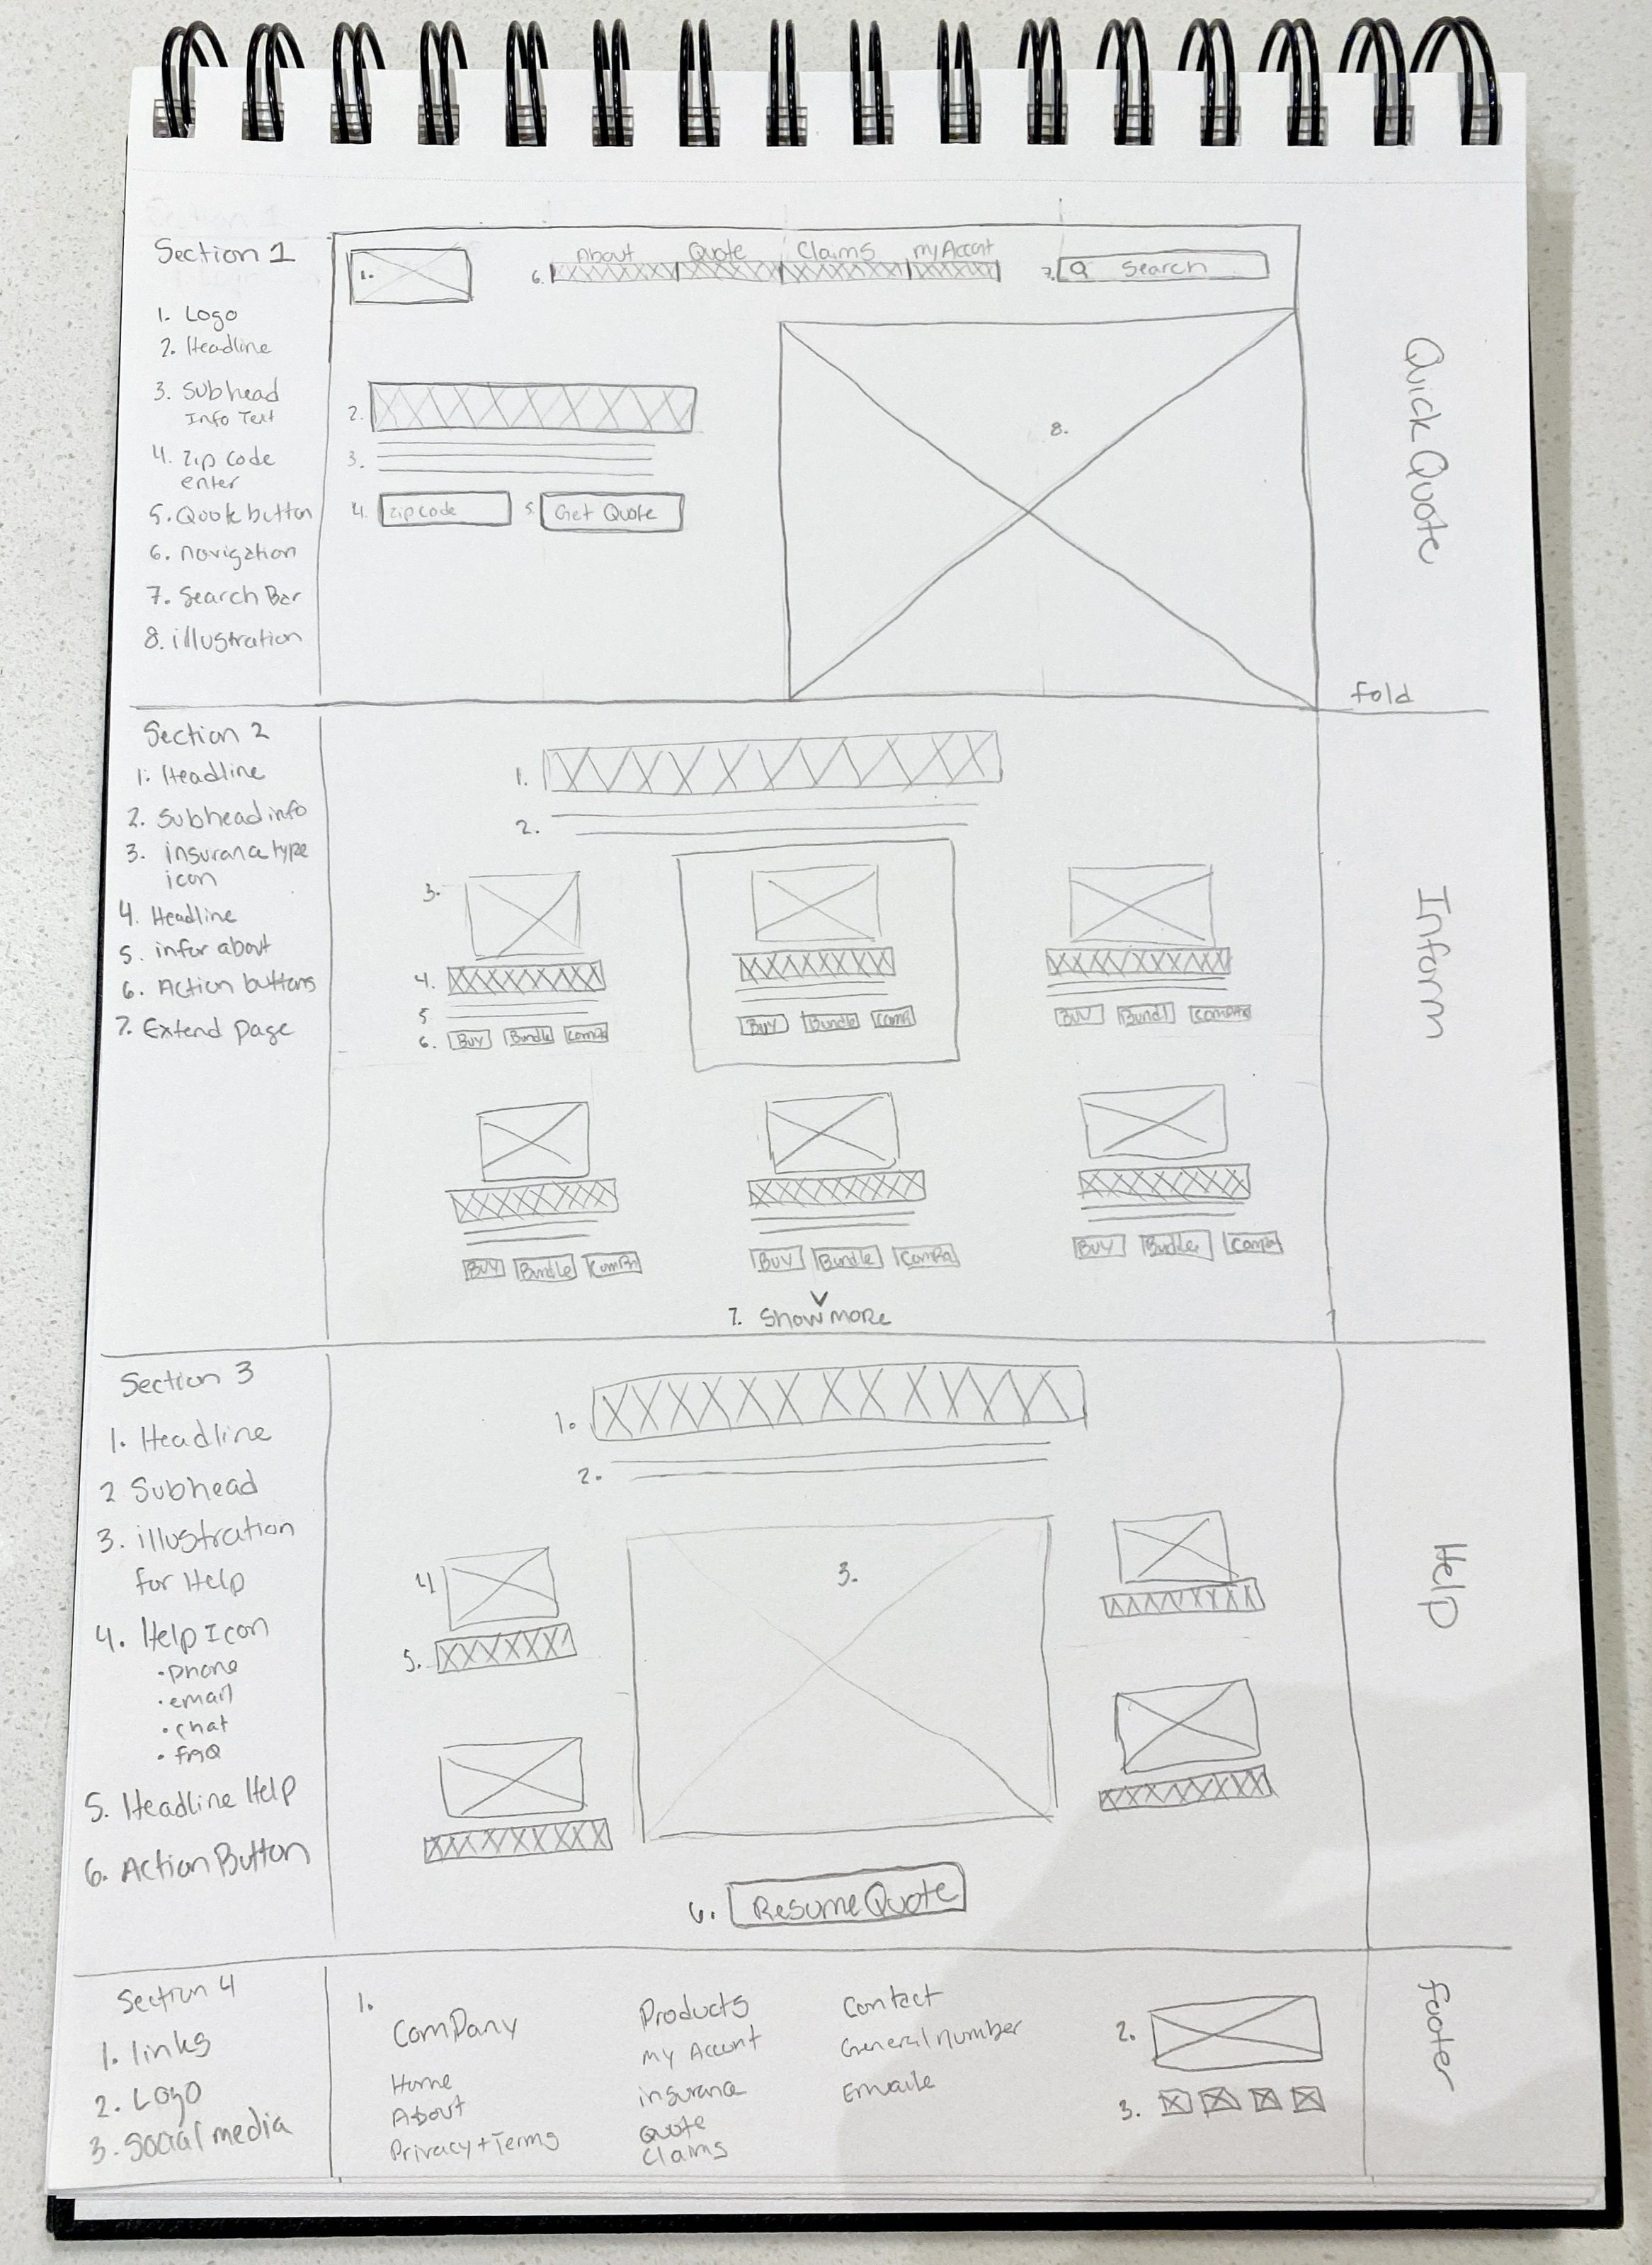 Section 1
1. Logo
2. Headline
3. Subhead
Info Text
4. Zip Code
enter
5. Quote button
6. navigation
7. Search Bar
8. illustration
1.
6. About Quote Claims my Accont
7. Search
2.
3.
4. zip code
5. Get Quote
8.
Quick Quote
fold
Section 2
1. Headline
2. Subhead info
3. insurance type
icon
4. Headline
5. infor about
6. Action buttons
7. Extend page
1.
2.
3.
4.
5
6. Buy Bundle
Buy Bundle
BUY Bundl
BUY Bundle
BUY Bundle
BUY Bundle
7. Show more
Inform
Section 3
1. Headline
2 Subhead
3. illustration
for Help
4. Help Icon
• phone
• email
• chat
• FAQ
5. Headline Help
6. Action Button
1.
2.
3.
4
5.
6. Resume Quote
Help
Section 4
1. links
2. Logo
3. Social media
1.
Company
Home
About
Privacy + Terms
Products
my Account
insurance
Quote
Claims
Contact
General number
2.
3.
footer